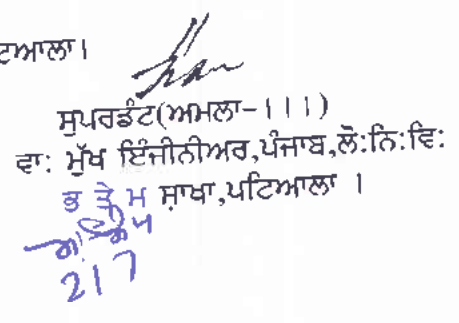 ਟਿਆਲਾ।
ਸੁਪਰਡੰਟ(ਅਮਲਾ-।।।)
ਵਾ: ਮੁੱਖ ਇੰਜੀਨੀਅਰ,ਪੰਜਾਬ,ਲੋ:ਨਿ:ਵਿ:
ਭ ਤੇ ਮ ਸ਼ਾਖਾ,ਪਟਿਆਲਾ ।
217